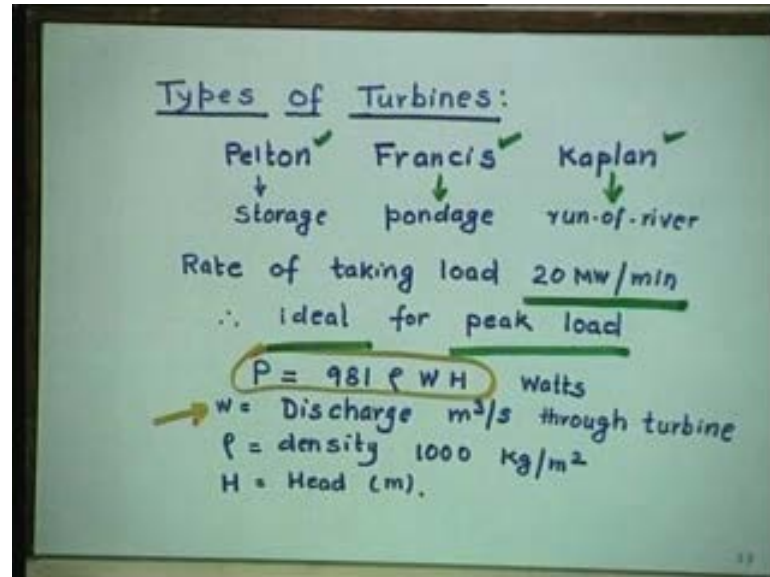 Types of Turbines:
Pelton Francis Kaplan
storage pondage run-of-river
Rate of taking load 20 MW/min
∴ ideal for peak load
P = 981 ρ W H Watts
W = Discharge m³/s through turbine
ρ = density 1000 Kg/m²
H = Head (m).